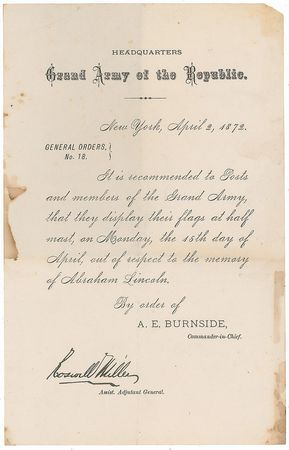 HEADQUARTERS
Grand Army of the Republic.
New York, April 2, 1872.
GENERAL ORDERS,
No. 18.
It is recommended to Posts
and members of the Grand Army,
that they display their flags at half
mast, on Monday, the 15th day of
April, out of respect to the memory
of Abraham Lincoln.
By order of
A. E. BURNSIDE,
Commander-in-Chief.
Roswell Miller
Assist. Adjutant General.